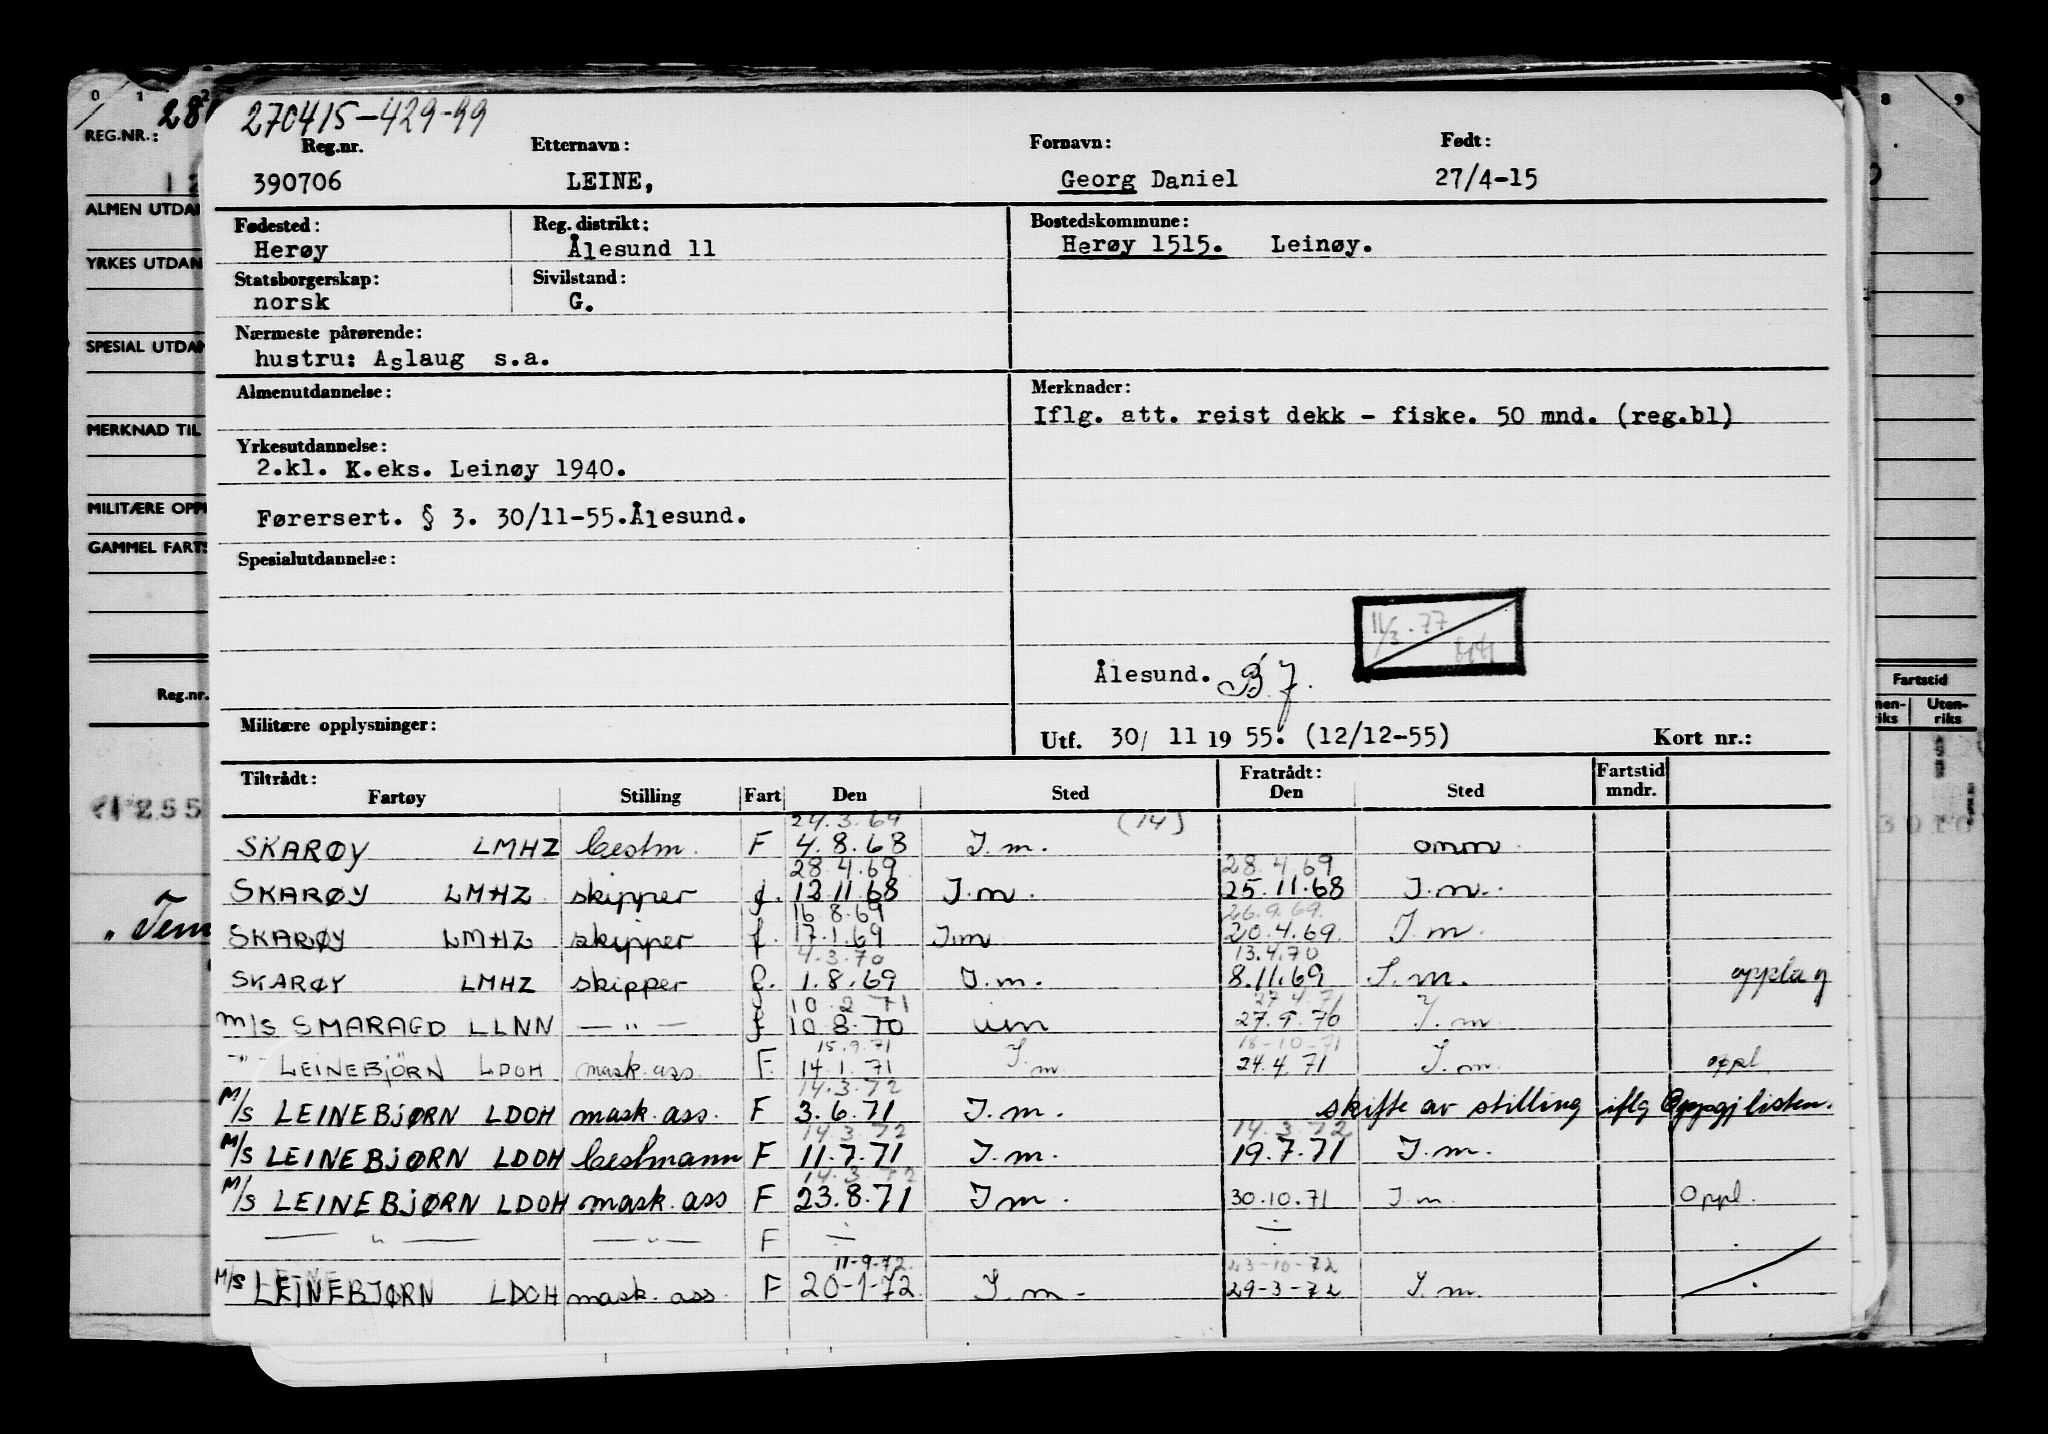 0 1 2 8 9
REG.NR.: 28
270415-429-99
Reg.nr. Etternavn: Fornavn: Født:
390706 LEINE, Georg Daniel 27/4-15
ALMEN UTDAN
Fødested: Reg. distrikt: Bostedskommune:
Herøy Ålesund 11 Herøy 1515. Leinøy.
YRKES UTDAN
Statsborgerskap: Sivilstand:
norsk G.
Nærmeste pårørende:
SPESIAL UTDAN
hustru: Aslaug s.a.
Almenutdannelse: Merknader:
Iflg. att. reist dekk - fiske. 50 mnd. (reg.bl)
MERKNAD TIL
Yrkesutdannelse:
2.kl. K.eks. Leinøy 1940.
MILITÆRE OPPL
Førersert. § 3. 30/11-55.Ålesund.
GAMMEL FARTS
Spesialutdannelse:
11/3-77
HH
Ålesund. B.J.
Reg.nr. Fartstid
Innen-riks Uten-riks
Militære opplysninger: Utf. 30/ 11 19 55. (12/12-55) Kort nr.:
Tiltrådt: Fratrådt: Fartstid
Fartøy Stilling Fart Den Sted Den Sted mndr.
24.3.69 (14)
SKARØY LMHZ Bestm. F 4.8.68 I.m. omm
28.4.69 28.4.69
SKARØY LMHZ skipper f. 12.11.68 I.m. 25.11.68 I.m.
16.8.69 26.9.69.
"Tem SKARØY LMHZ skipper f. 17.1.69 I.m 20.4.69. I.m.
4.3.70 13.4.70
SKARØY LMHZ skipper f. 1.8.69 I.m. 8.11.69 I.m. opplag
10.2.71 27.4.71
m/s SMARAGD LLNN — " — f 10.8.70 um 27.9.70 I.m.
15.9.71 18-10-71
-"- LEINEBJÖRN LDOH mask.ass. F. 14.1.71 I.m. 24.4.71 I.m. oppl.
14.3.72
M/S LEINEBJØRN LDOH mask.ass. F 3.6.71 I.m. skifte av stilling iflg Oppgj listen.
14.3.72 14.3.72
M/S LEINEBJØRN LDOH Bestmann F 11.7.71 I.m. 19.7.71 I.m.
14.3.72
M/S LEINEBJØRN LDOH mask.ass F 23.8.71 I.m. 30.10.71 I.m. Oppl.
— " — — " — F ÷ ÷
11-9-72. 23-10-72
M/S LEINEBJØRN LDOH mask.ass. F 20-1-72 I.m. 29-3-72 I.m.